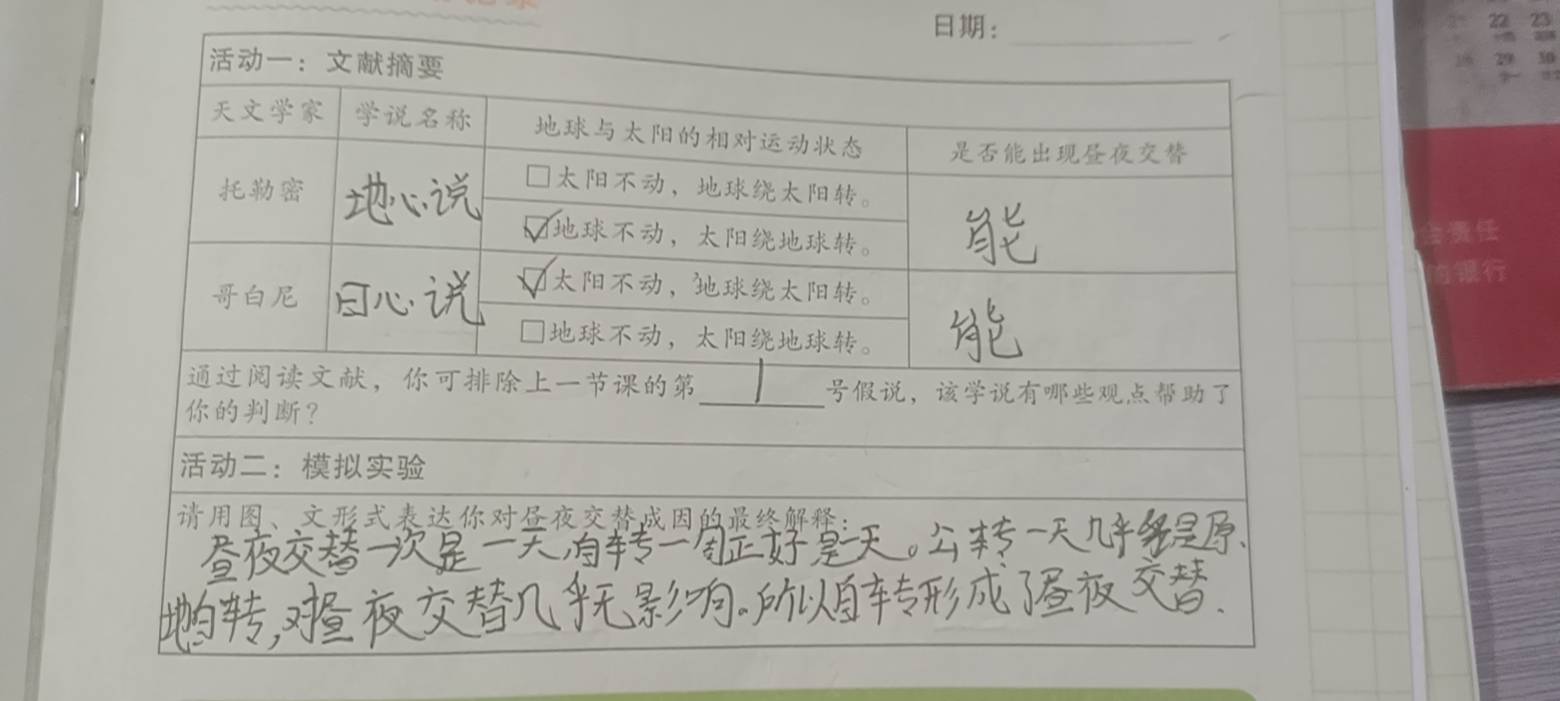 日期：
活动一：文献摘要
天文学家 学说名称 地球与太阳的相对运动状态 是否能出现昼夜交替
托勒密 地心说 □太阳不动，地球绕太阳转。 能
☑地球不动，太阳绕地球转。
哥白尼 日心说 ☑太阳不动，地球绕太阳转。 能
□地球不动，太阳绕地球转。
通过阅读文献，你可排除上一节课的第 1 号假说，该学说有哪些观点帮助了
你的判断？
活动二：模拟实验
请用图、文形式表达你对昼夜交替成因的最终解释：
昼夜交替一次是一天，自转一周正好是一天。公转一天几乎是原
地自转，对昼夜交替几乎无影响。所以自转形成了昼夜交替.
22 23
29 30
责任
银行